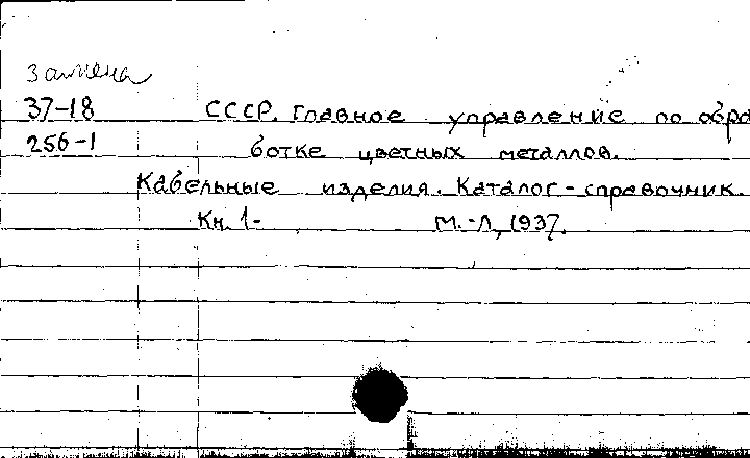 замена
37-18 СССР. Главное управление по обра
256-1 ботке цветных металлов.
Кабельные изделия. Каталог-справочник.
Кн. 1- М.-Л., 1937.